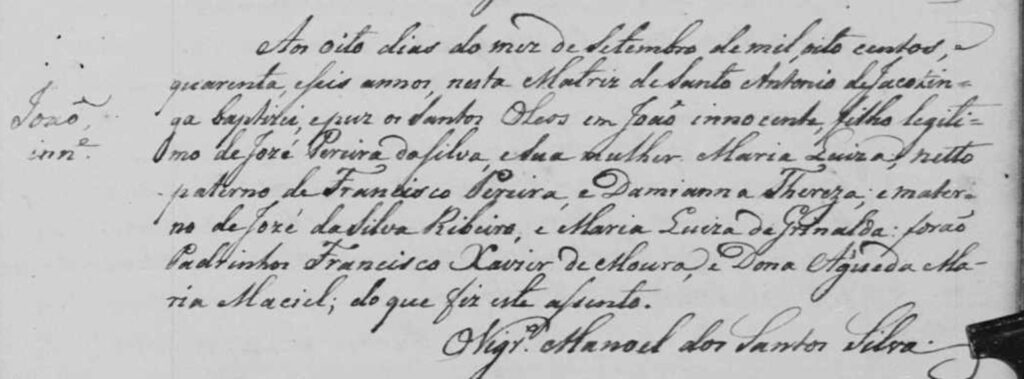 Aos oito dias do mez de Setembro de mil, oito centos, e
quarenta, eseis annos, nesta Matriz de Santo Antonio de Jacotin-
João,
ga baptizei, epuz os Santos Oleos em João innocente, filho legiti-
inn.e
mo de Jozé Pereira da Silva, e Sua mulher Maria Luiza; netto
paterno de Francisco Pereira, e Damianna Thereza; e mater-
no de Jozé da Silva Ribeiro, e Maria Luiza de Grinalda: forão
Padrinhos Francisco Xavier de Moura, e Dona Agueda Ma-
ria Maciel; do que fiz este assento.
O Vigr.o Manoel dos Santos Silva.